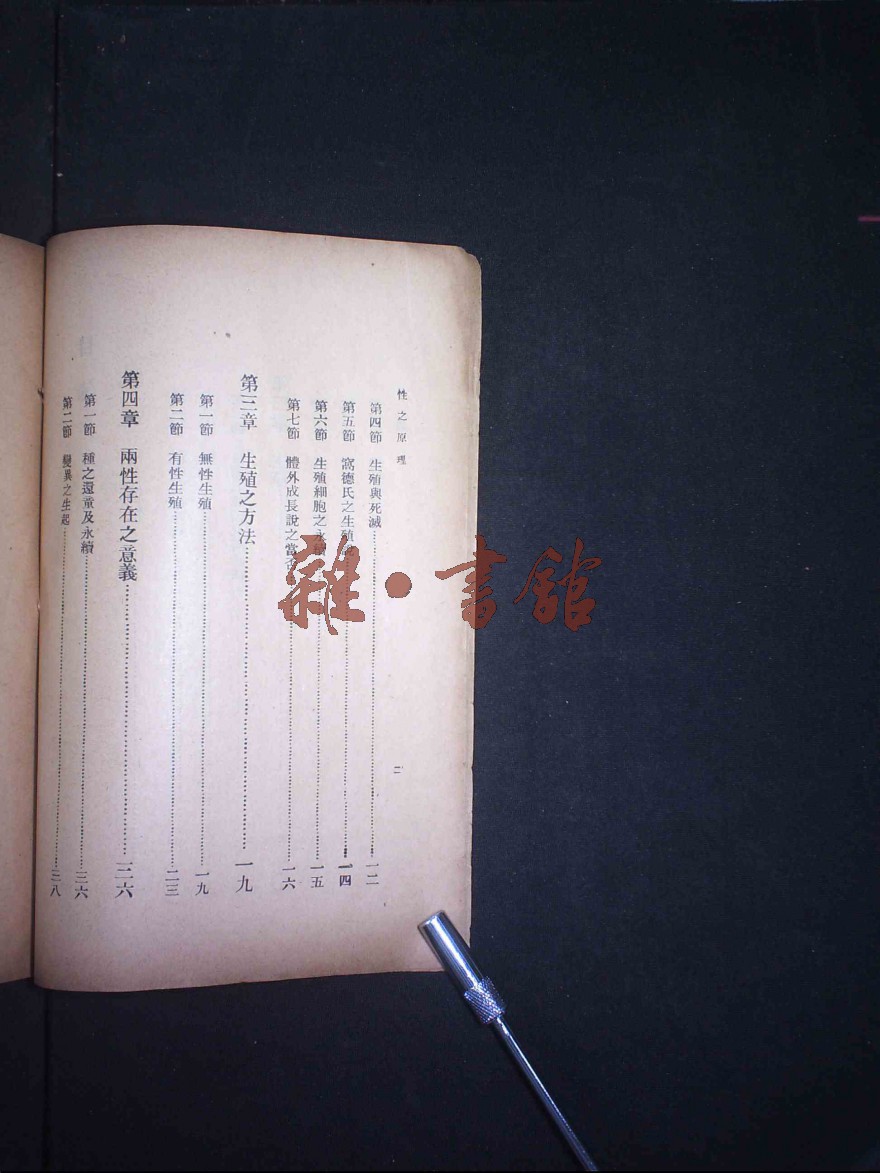 性之原理
二
第四節 生殖與死滅 一二
第五節 窩德氏之生殖 一四
第六節 生殖細胞之永 一五
第七節 體外成長說之當 一六
第三章 生殖之方法 一九
第一節 無性生殖 一九
第二節 有性生殖 二三
第四章 兩性存在之意義 三六
第一節 種之還童及永續 三六
第二節 變異之生起 三八
雜·書館